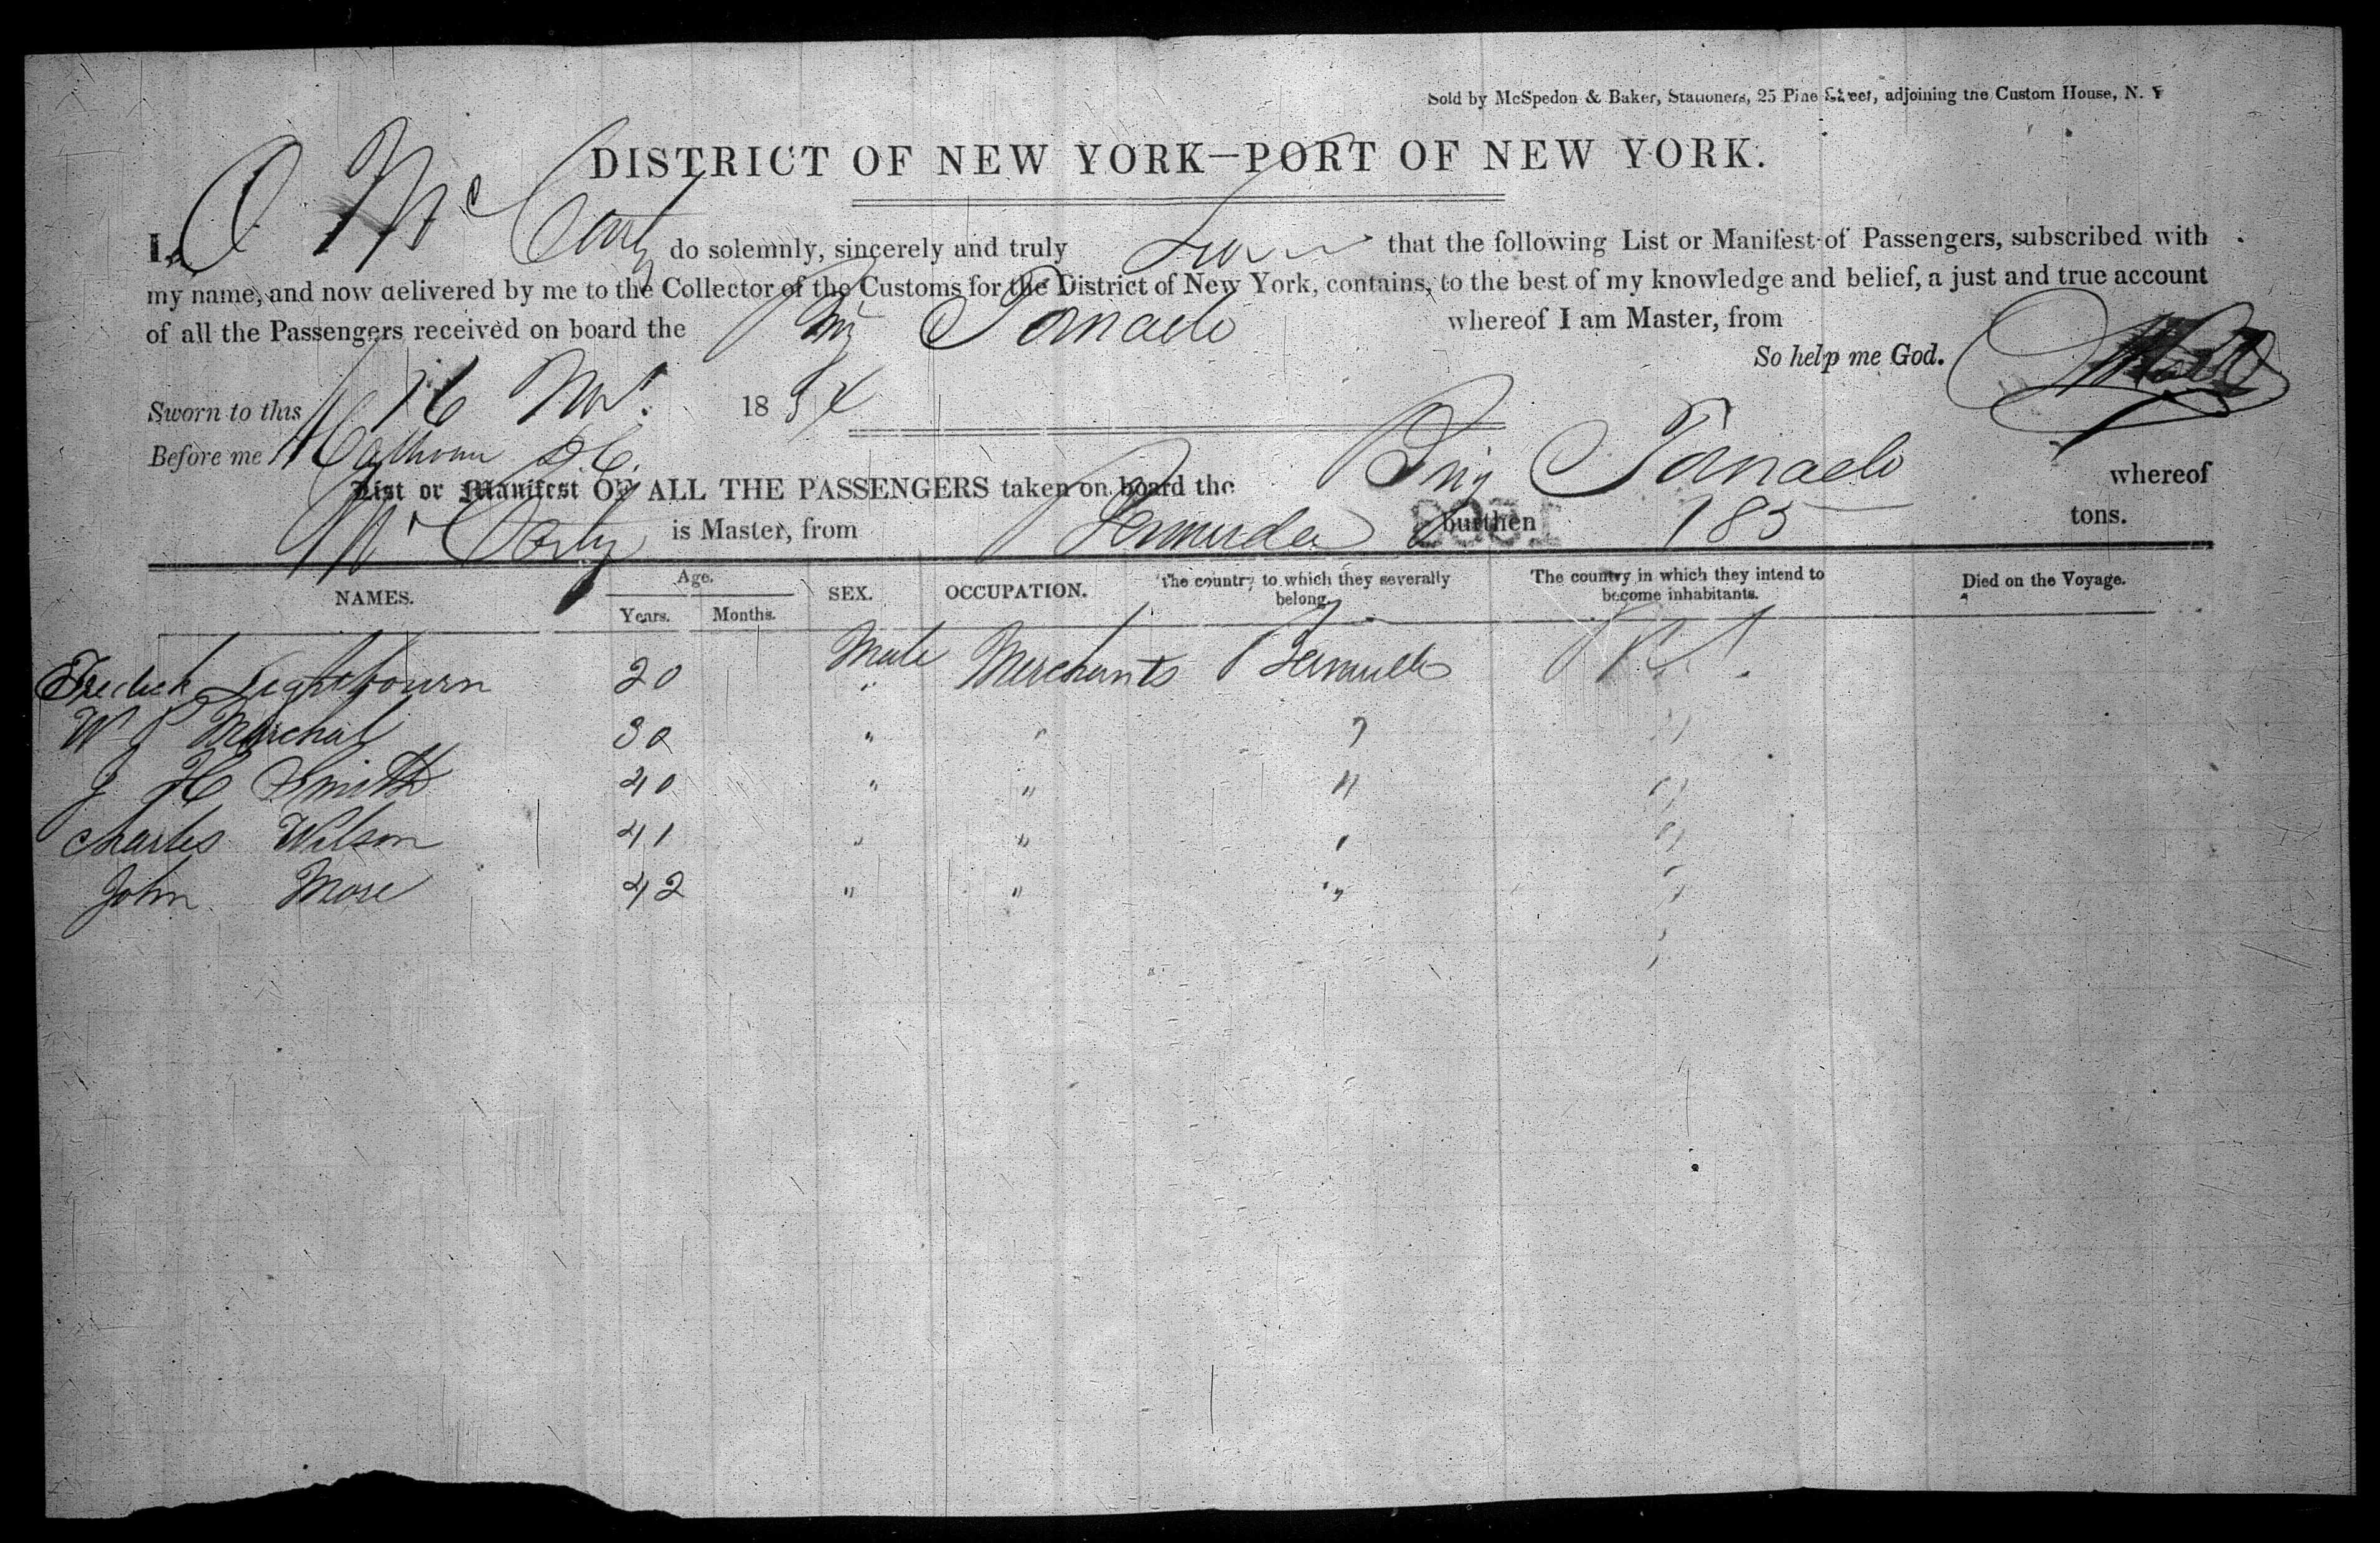 Sold by McSpedon & Baker, Stationers, 25 Pine Street, adjoining the Custom House, N. Y
DISTRICT OF NEW YORK—PORT OF NEW YORK.
I, O McCarty do solemnly, sincerely and truly swear that the following List or Manifest of Passengers, subscribed with
my name, and now delivered by me to the Collector of the Customs for the District of New York, contains, to the best of my knowledge and belief, a just and true account
of all the Passengers received on board the Brig Tornado whereof I am Master, from
So help me God.
Sworn to this 16 Nov. 1854
Before me Calhoun D.C.
List or Manifest OF ALL THE PASSENGERS taken on board the Brig Tornado whereof
McCarty is Master, from Bermuda burthen 185 tons.
NAMES. Age. Years. Months. SEX. OCCUPATION. The country to which they severally belong. The country in which they intend to become inhabitants. Died on the Voyage.
Fredick Lightbourn 20 Male Merchants Bermuda
W J Marchal 30 " " " "
J H Smith 40 " " " "
Charles Wilson 41 " " " "
John More 42 " " " "